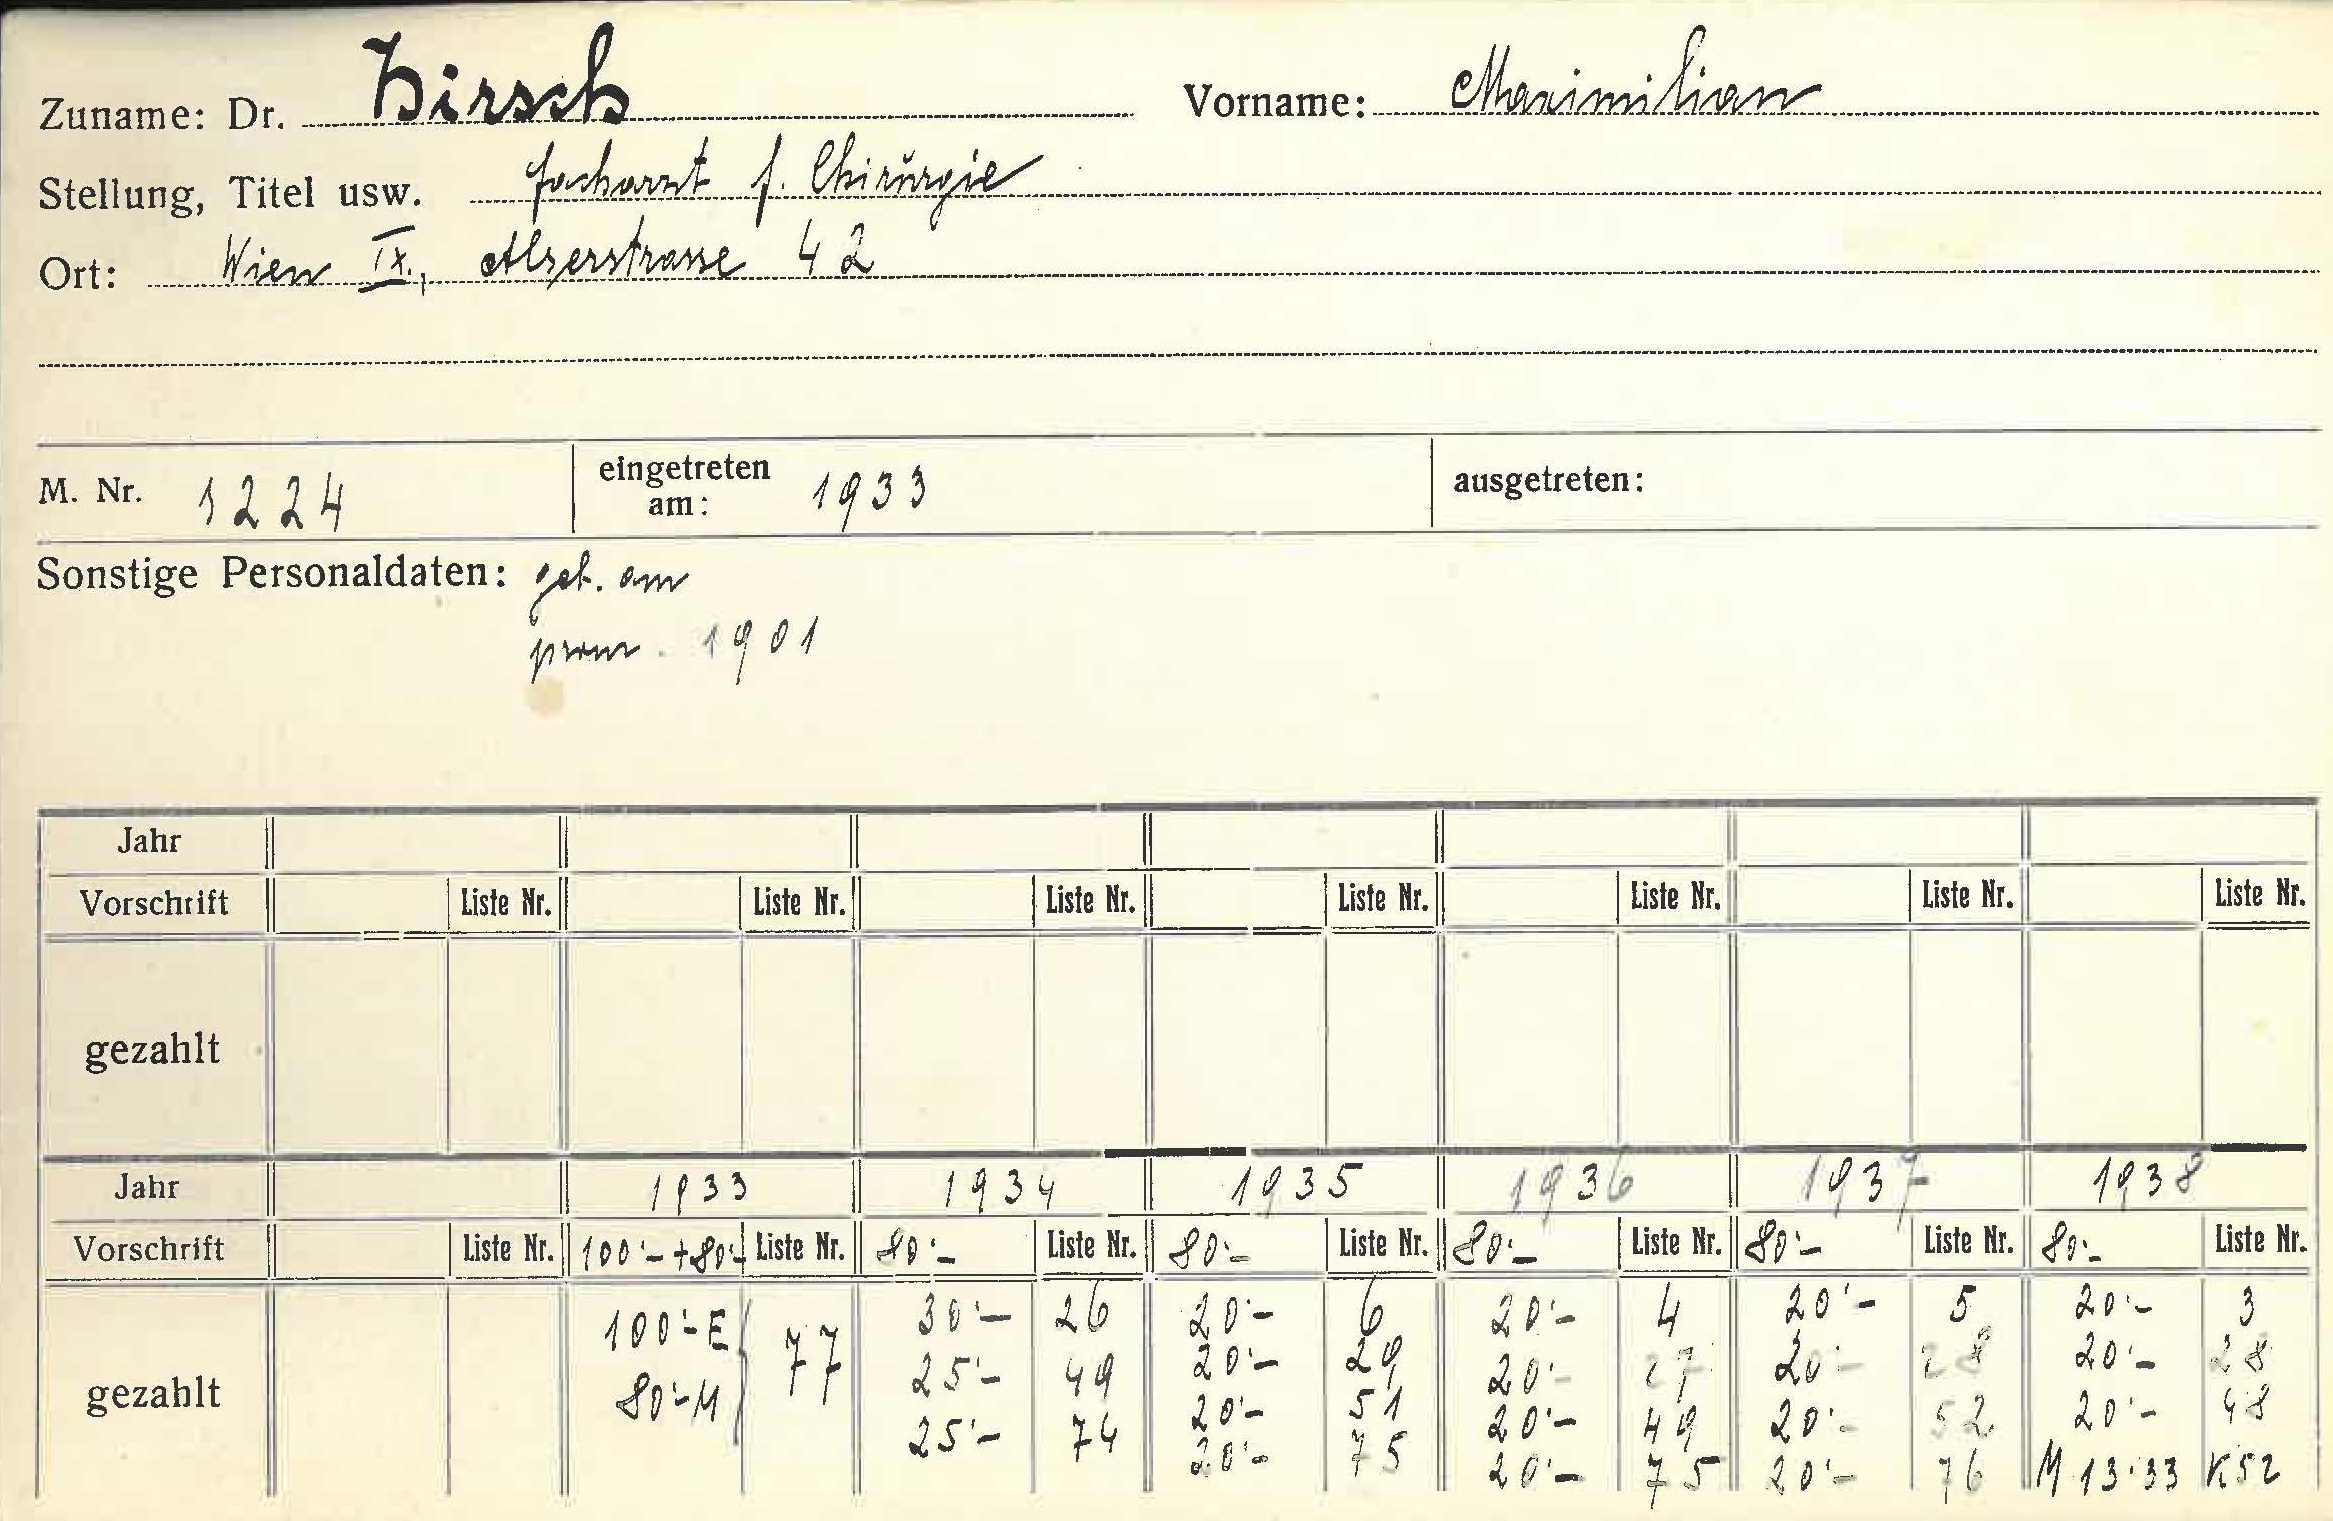 Zuname: Dr. Hirsch Vorname: Maximilian
Stellung, Titel usw. Facharzt f. Chirurgie
Ort: Wien IX., Alserstrasse 42
M. Nr. 1224 eingetreten am: 1933 ausgetreten:
Sonstige Personaldaten: geb. am
prom. 1901
Jahr
Vorschrift Liste Nr. Liste Nr. Liste Nr. Liste Nr. Liste Nr. Liste Nr. Liste Nr.
gezahlt
Jahr 1933 1934 1935 1936 1937 1938
Vorschrift Liste Nr. 100'- + 80'- Liste Nr. 80'- Liste Nr. 80'- Liste Nr. 80'- Liste Nr. 80'- Liste Nr. 80'- Liste Nr.
gezahlt
100'- E 77 30'- 26 20'- 6 20'- 4 20'- 5 20'- 3
80'- M 25'- 49 20'- 29 20'- 27 20'- 28 20'- 28
25'- 74 20'- 51 20'- 49 20'- 52 20'- 48
20'- 75 20'- 75 20'- 76 M 13.33 K52